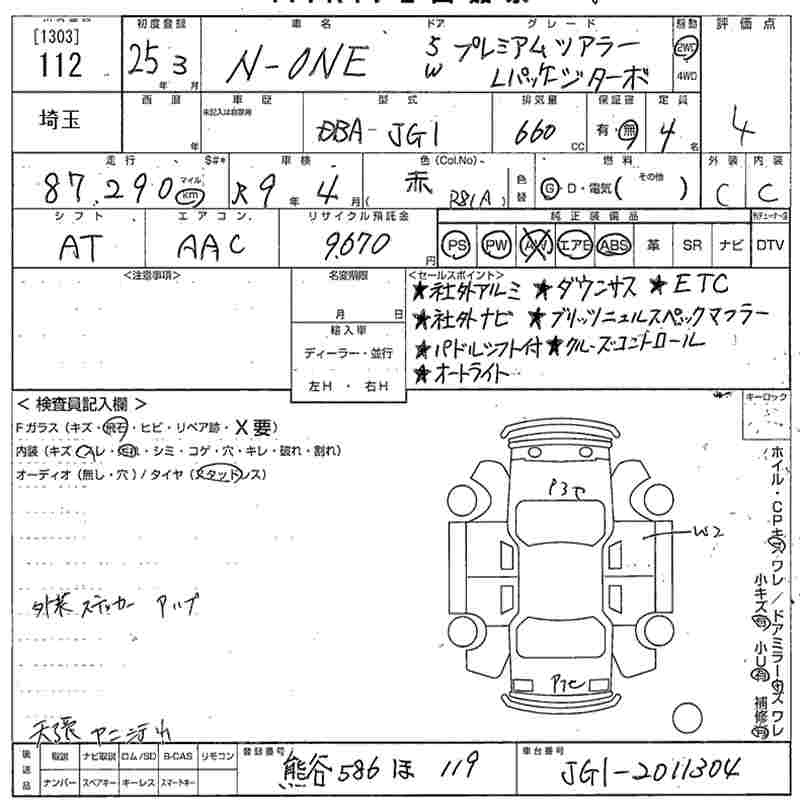 [1303]
112
初度登録
25 年 3 月
車名
N-ONE
ドア
5
W
グレード
プレミアムツアラー
Lパッケージターボ
駆動
2WD
4WD
評価点
4
埼玉
西暦
年
車歴
未記入は自家用
型式
DBA-JG1
排気量
660 CC
保証書
有・無
定員
4 名
走行
87,290 マイル km
S#*
車検
R9 年 4 月
色(Col.No)
赤 ( R81(A) )
色替
燃料
G・D・電気( その他 )
外装
C
内装
C
シフト
AT
エアコン
AAC
リサイクル預託金
9670 円
純正装備品
PS PW AW エアB ABS 革 SR ナビ DTV
<注意事項>
名変期限
月 日
輸入車
ディーラー・並行
左H ・ 右H
<セールスポイント>
★社外アルミ ★ダウンサス ★ETC
★社外ナビ ★ブリッツニュルスペックマフラー
★パドルシフト付★クルーズコントロール
★オートライト
<検査員記入欄>
Fガラス(キズ・飛石・ヒビ・リペア跡・X要)
内装(キズ スレ・汚れ・シミ・コゲ・穴・キレ・破れ・割れ)
オーディオ(無し・穴)/タイヤ(スタッドレス)
キーロック
P3セ
W2
P1セ
ホイル・CPキズ ワレ/ドアミラーキズ ワレ
小キズ有 小U有 補修有
外装 ステッカー アップ
天張 ヤニ汚れ
後送品
取説 ナビ取説 ロム/SD B-CAS リモコン
ナンバー スペアキー キーレス スマートキー
登録番号
熊谷 586 ほ 119
車台番号
JG1-2011304